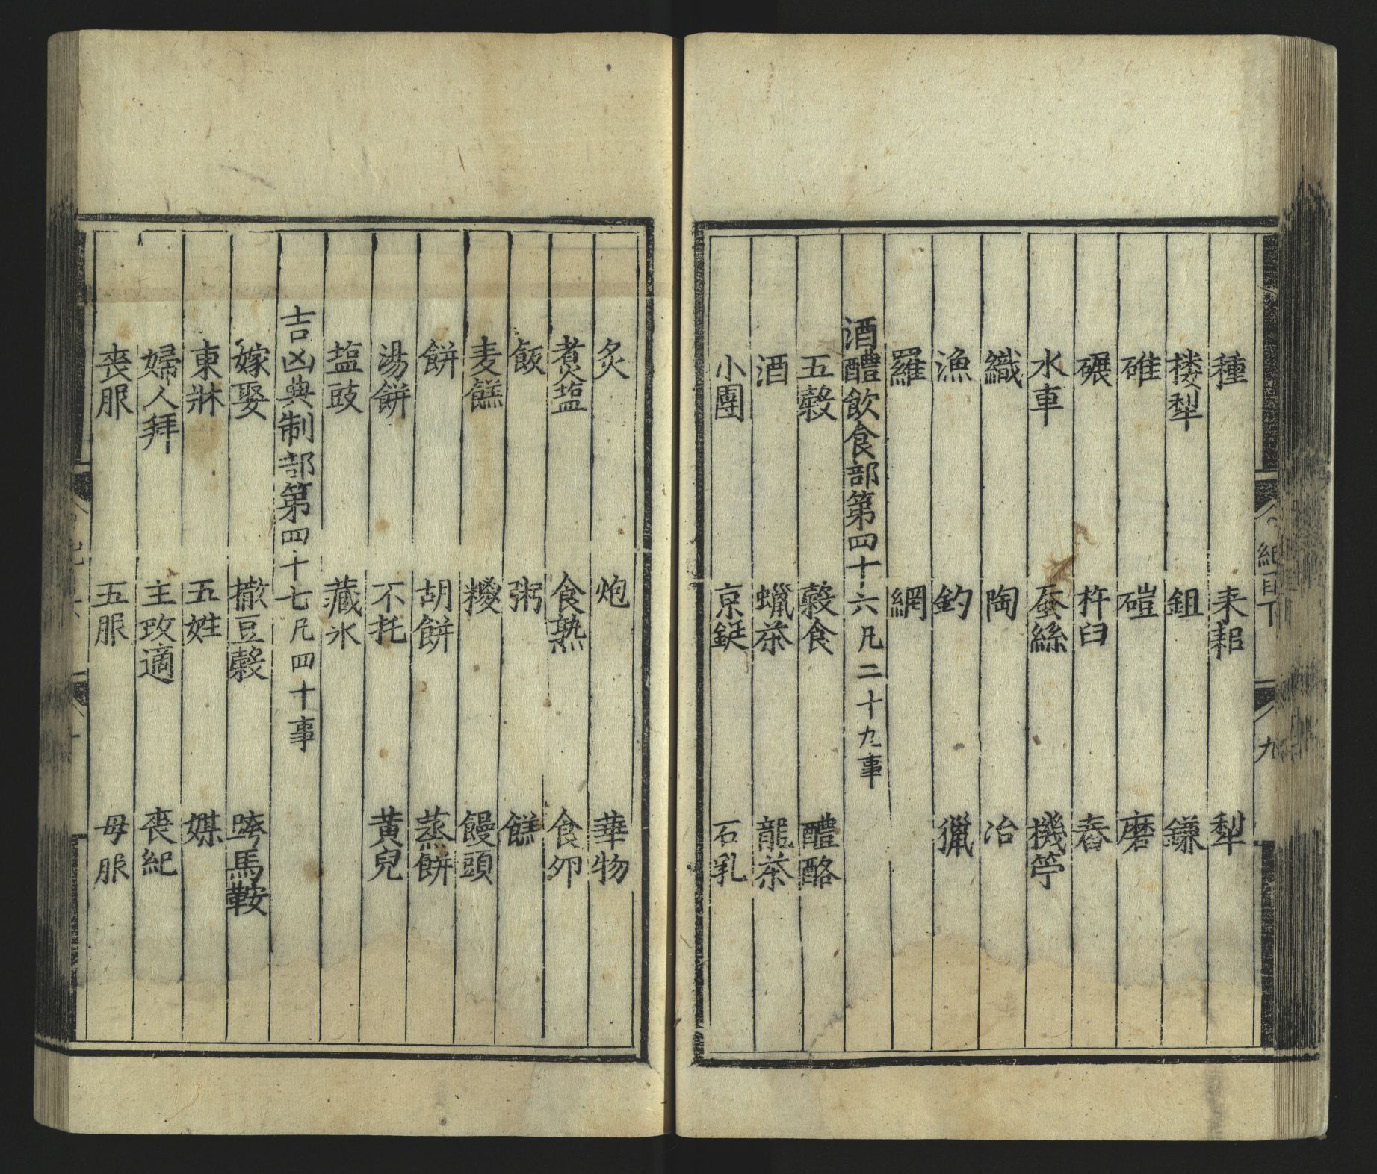 種 耒耜 犁
耬犁 鉏 鎌
碓 磑 磨
碾 杵臼 舂
水車 蚕絲 機竚
織 陶 冶
漁 釣 獵
羅 網
酒醴飲食部第四十六凡二十九事
五穀 穀食 醴酪
酒 蠟茶 龍茶
小團 京鋌 石乳
紀目下 九
炙 炮 葷物
煑塩 食熟 食夘
飯 粥 餻
麦饎 糉 饅頭
餅 胡餅 蒸餅
湯餅 不托 黃兒
塩豉 藏氷
吉凶典制部第四十七凡四十事
嫁娶 撒豆穀 跨馬鞍
東牀 五姓 媒
婦人拜 主攻適 喪紀
喪服 五服 母服